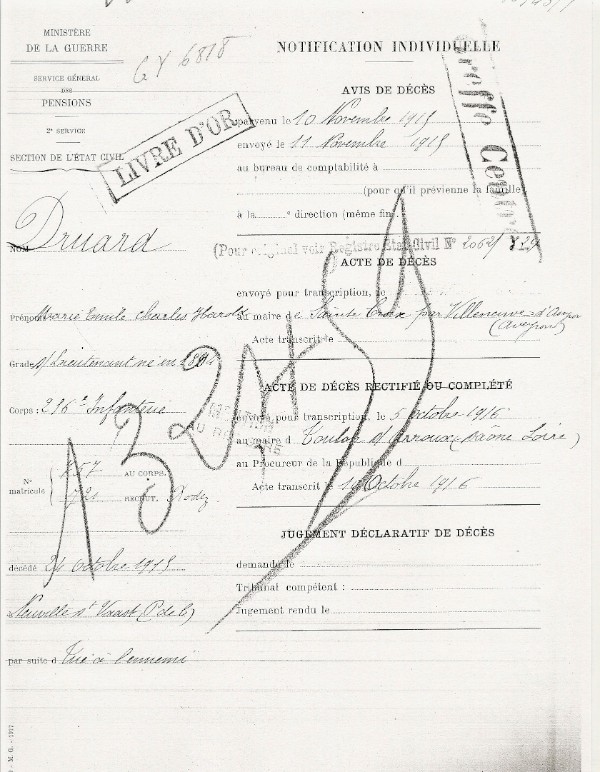 MINISTÈRE
DE LA GUERRE
SERVICE GÉNÉRAL
DES
PENSIONS
2e SERVICE
SECTION DE L'ÉTAT CIVIL
GY 6818
LIVRE D'OR
NOM Druard
Prénoms Marie Emile Charles
Grade s/Lieutenant né en
Corps : 296e Infanterie
No matricule
AU CORPS.
RECRUT. Rodez
décédé octobre 1915
Neuville St Vaast (P de C)
par suite d Tué à l'ennemi
NOTIFICATION INDIVIDUELLE
AVIS DE DÉCÈS
parvenu le 10 Novembre 1915
envoyé le 11 Novembre 1915
au bureau de comptabilité à
(pour qu'il prévienne la famille)
à la e direction (même fin)
(Pour original voir Registre Etat Civil No
ACTE DE DÉCÈS
envoyé pour transcription, le
au maire de Sainte Croix par Villeneuve d'
(Aveyron)
Acte transcrit le
ACTE DE DÉCÈS RECTIFIÉ OU COMPLÉTÉ
envoyé pour transcription, le 5 octobre 1916
au maire d Toulon s/ Arroux (Saône Loire)
au Procureur de la République d
Acte transcrit le Octobre 1916
JUGEMENT DÉCLARATIF DE DÉCÈS
demandé le
Tribunal compétent :
Jugement rendu le
M. G. - 1917